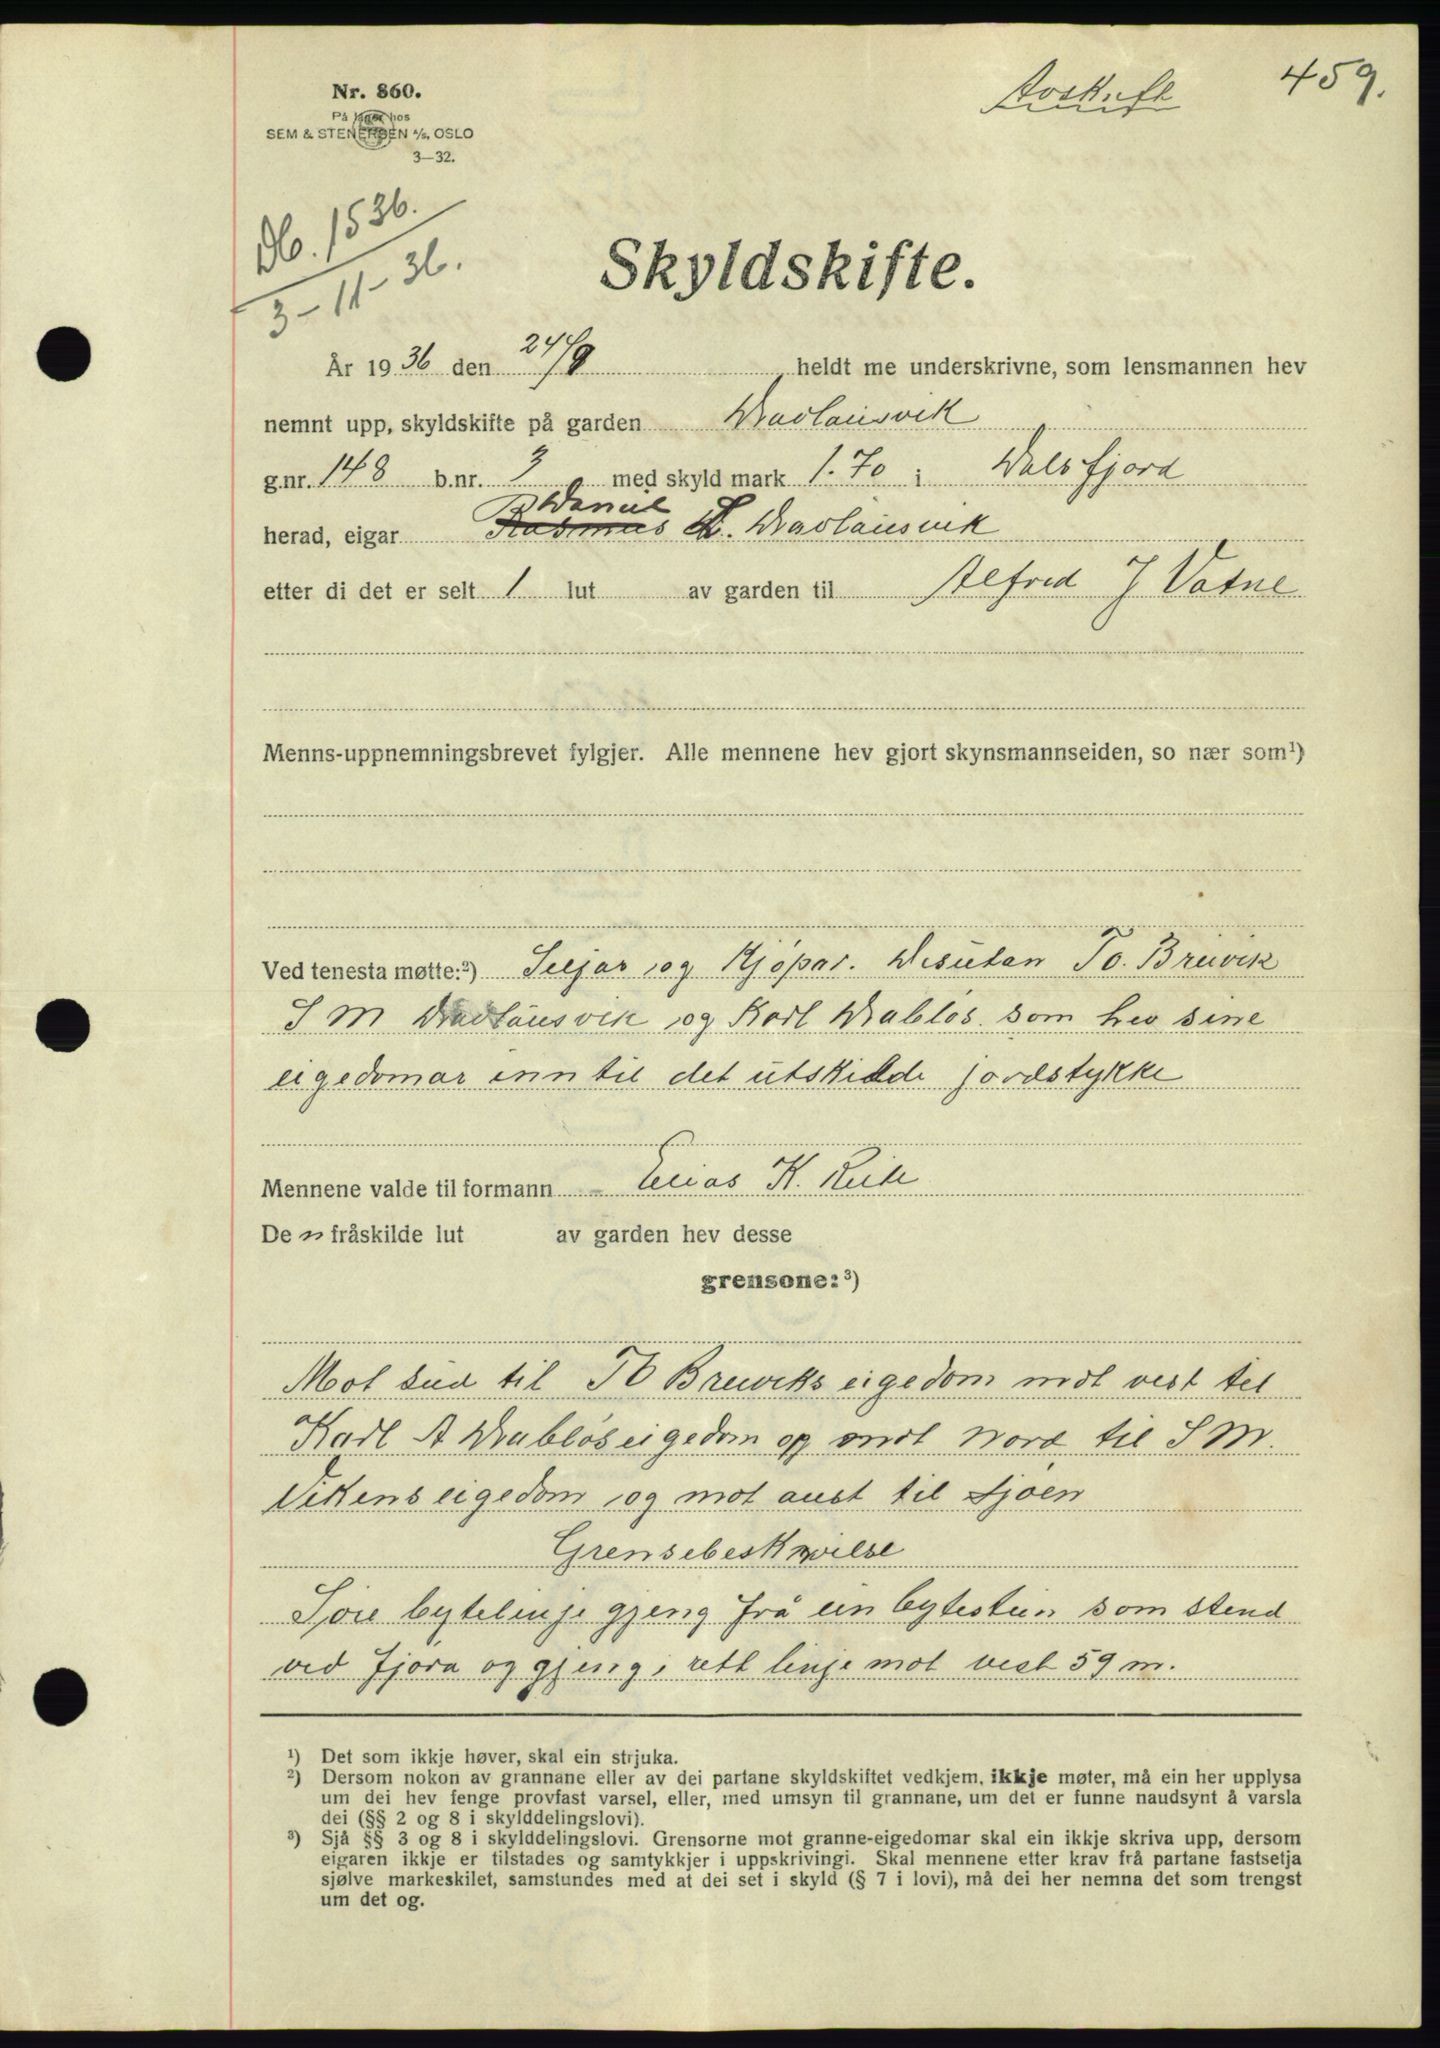 459.
Avskrift
Nr. 860.
På lager hos
SEM & STENERSEN A/S, OSLO
3—32.
Db. 1536.
3-11-36.
Skyldskifte.
År 1936 den 24/9 heldt me underskrivne, som lensmannen hev
nemnt upp, skyldskifte på garden Dravlausvik
g.nr. 148 b.nr. 3 med skyld mark 1.70 i Dalsfjord
Daniel
herad, eigar Rasmus Dravlausvik
etter di det er selt 1 lut av garden til Alfred J Vatne
Menns-uppnemningsbrevet fylgjer. Alle mennene hev gjort skynsmannseiden, so nær som¹)
Ved tenesta møtte:²) Seljar og Kjøpar. Desutan To. Breivik
S M Dravlausvik og Karl Drabløs. som hev sine
eigedomar inn til det utskilde jordstykke
Mennene valde til formann Elias K. Reite
Den fråskilde lut av garden hev desse
grensone:³)
Mot sud til To Breiviks eigedom mot vest til
Karl A Drabløs eigedom og mot nord til S M.
Vikens eigedom og mot aust til sjøen
Grensebeskrivelse
Søre bytelinje gjeng frå ein bytestein som stend
ved fjøra og gjeng i rett linje mot vest 59 m.
¹) Det som ikkje høver, skal ein strjuka.
²) Dersom nokon av grannane eller av dei partane skyldskiftet vedkjem, ikkje møter, må ein her upplysa
um dei hev fenge provfast varsel, eller, med umsyn til grannane, um det er funne naudsynt å varsla
dei (§§ 2 og 8 i skylddelingslovi).
³) Sjå §§ 3 og 8 i skylddelingslovi. Grensorne mot granne-eigedomar skal ein ikkje skriva upp, dersom
eigaren ikkje er tilstades og samtykkjer i uppskrivingi. Skal mennene etter krav frå partane fastsetja
sjølve markeskilet, samstundes med at dei set i skyld (§ 7 i lovi), må dei her nemna det som trengst
um det og.